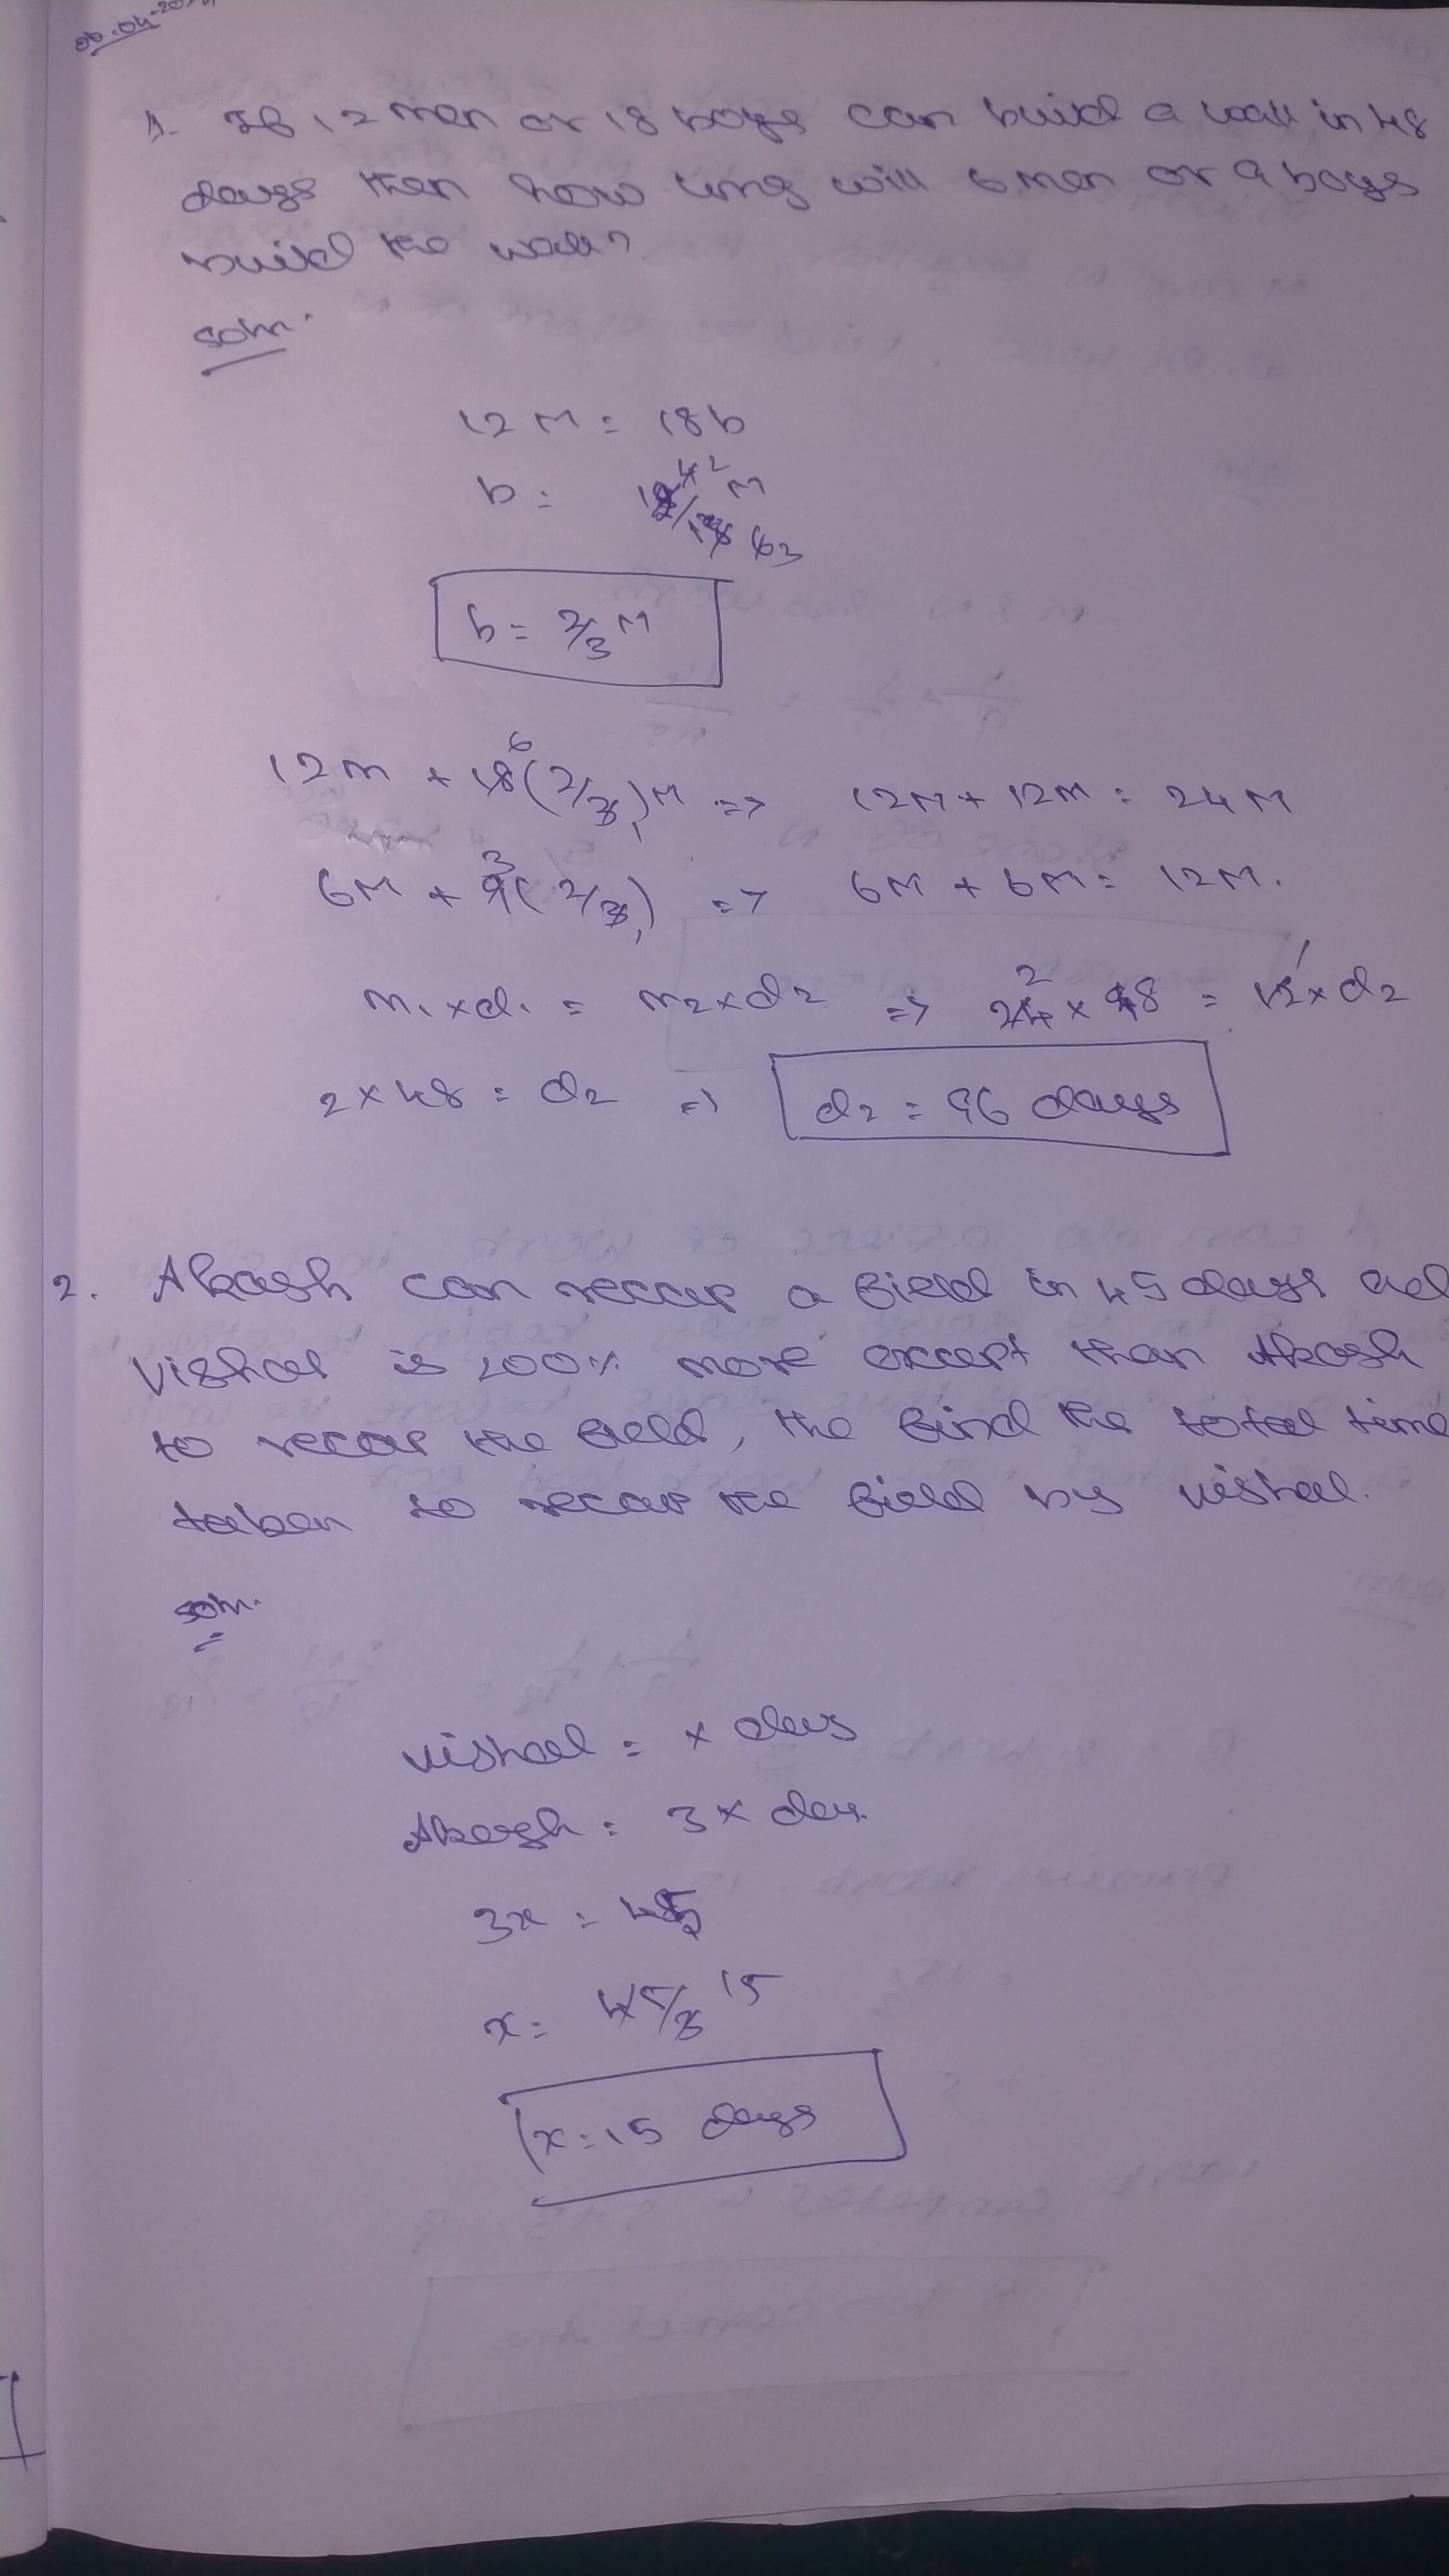 1. If 12 men or 18 boys can build a wall in 48
days then how long will 6 men or 9 boys
build the wall?
soln.
12 M = 18b
b = 12/18 M
b = 2/3 M
12m + 18(2/3)M => 12M + 12M = 24M
6M + 9(2/3) => 6M + 6M = 12M.
m1 x d1 = m2 x d2 => 24 x 48 = 12 x d2
2 x 48 = d2 => d2 = 96 days
2. Akash can reecap a field in 45 days ad
Vishal is 200% more except than Akash
to recap the field, the find the total time
taken to reecap the field by vishal.
soln.
vishal = x days
Akash = 3x day.
3x = 45
x = 45/3 15
x = 15 days